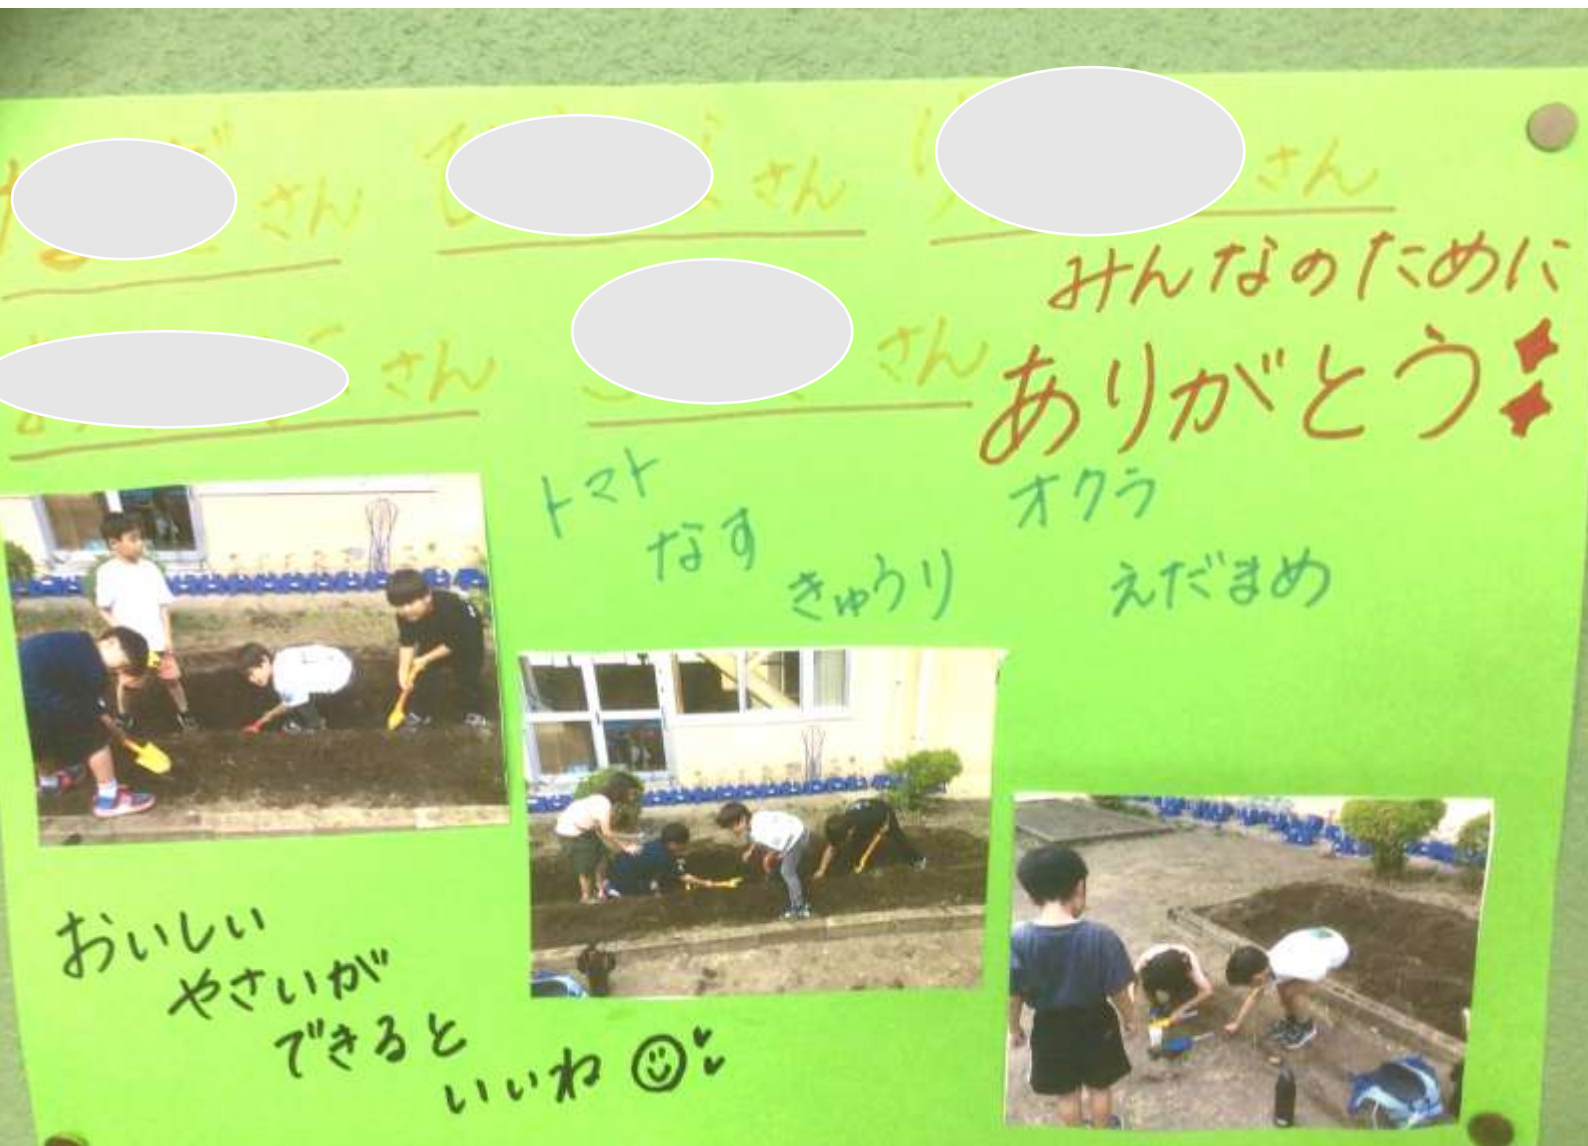 さん さん さん
さん さん
みんなのために
ありがとう
トマト
なす
きゅうり
オクラ
えだまめ
おいしい
やさいが
できると
いいね